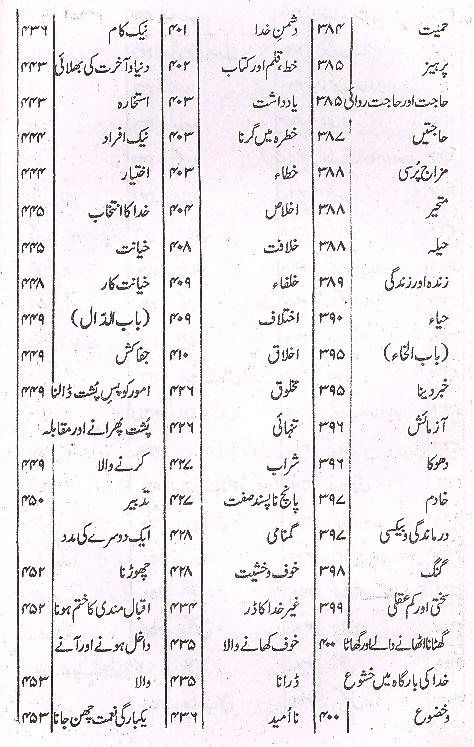 حمیت ۳۸۴
پرہیز ۳۸۵
حاجت اور حاجت روائی ۳۸۵
حاجتیں ۳۸۷
مزاج پُرسی ۳۸۸
متحیر ۳۸۸
حیلہ ۳۸۸
زندہ اور زندگی ۳۸۹
حیاء ۳۹۰
(باب الخاء) ۳۹۵
خبر دینا ۳۹۵
آزمائش ۳۹۶
دھوکا ۳۹۶
خادم ۳۹۷
درماندگی و بیکسی ۳۹۷
گنگ ۳۹۸
سختی اور کم عقلی ۳۹۹
گھٹانا اٹھانے والے اور گھاٹا ۴۰۰
خدا کی بارگاہ میں خشوع
وخضوع ۴۰۰
دشمنِ خدا ۴۰۱
خط، قلم اور کتاب ۴۰۲
یادداشت ۴۰۳
خطرہ میں گرنا ۴۰۳
خطاء ۴۰۳
اخلاص ۴۰۴
خلافت ۴۰۸
خلفاء ۴۰۹
اختلاف ۴۰۹
اخلاق ۴۱۰
مخلوق ۴۲۶
تنہائی ۴۲۶
شراب ۴۲۷
پانچ ناپسند صفت ۴۲۷
گمنامی ۴۲۸
خوف و خشیت ۴۲۸
غیر خدا کا ڈر ۴۳۴
خوف کھانے والا ۴۳۵
ڈرانا ۴۳۵
نا اُمید ۴۳۶
نیک کام ۴۳۶
دنیا و آخرت کی بھلائی ۴۴۳
استخارہ ۴۴۳
نیک افراد ۴۴۴
اختیار ۴۴۴
خدا کا انتخاب ۴۴۵
خیانت ۴۴۵
خیانت کار ۴۴۸
(باب الدّال) ۴۴۹
جفاکش ۴۴۹
امور کو پسِ پشت ڈالنا ۴۴۹
پشت پھرانے اور مقابلہ
کرنے والا ۴۴۹
تدبیر ۴۵۰
ایک دوسرے کی مدد
چھوڑنا ۴۵۲
اقبال مندی کا ختم ہونا ۴۵۲
داخل ہونے اور آنے
والا ۴۵۳
یکبارگی نعمت چھن جانا ۴۵۳